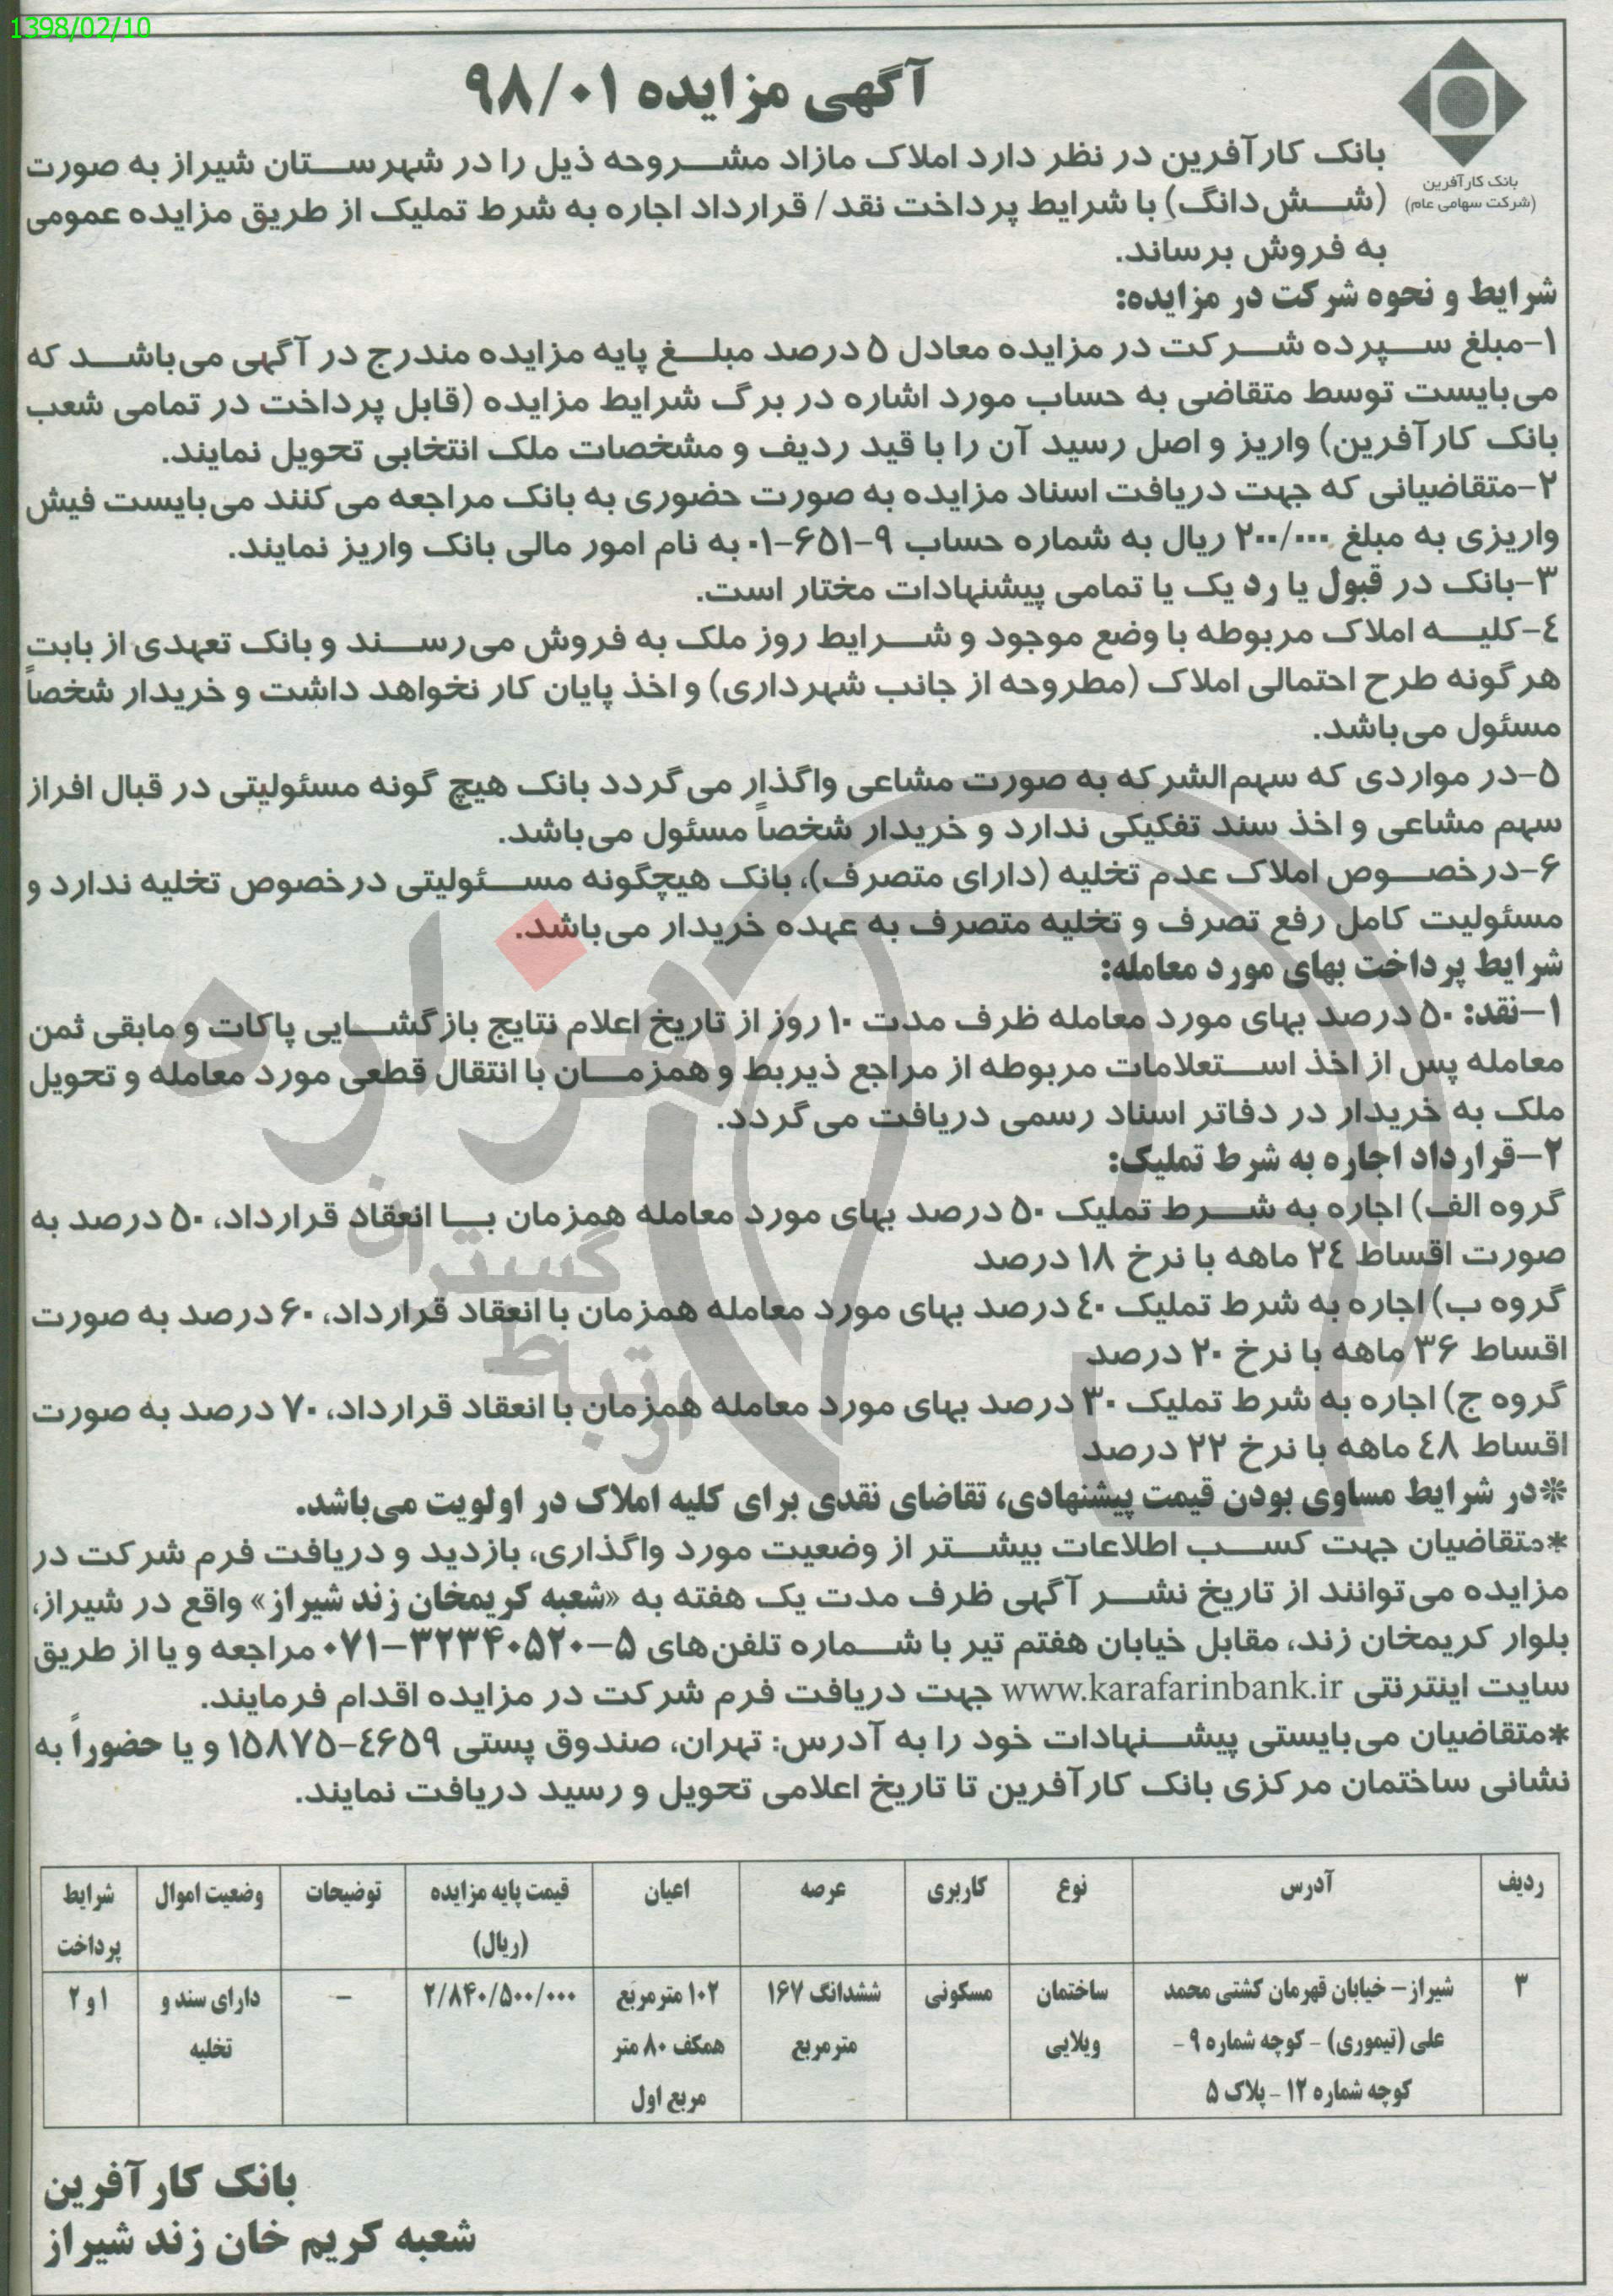 1398/02/10
آگهی مزایده ۹۸/۰۱
بانک کارآفرین
(شرکت سهامی عام)
بانک کارآفرین در نظر دارد املاک مازاد مشروحه ذیل را در شهرستان شیراز به صورت
(شش‌دانگ) با شرایط پرداخت نقد/ قرارداد اجاره به شرط تملیک از طریق مزایده عمومی
به فروش برساند.
شرایط و نحوه شرکت در مزایده:
۱-مبلغ سپرده شرکت در مزایده معادل ۵ درصد مبلغ پایه مزایده مندرج در آگهی می‌باشد که
می‌بایست توسط متقاضی به حساب مورد اشاره در برگ شرایط مزایده (قابل پرداخت در تمامی شعب
بانک کارآفرین) واریز و اصل رسید آن را با قید ردیف و مشخصات ملک انتخابی تحویل نمایند.
۲-متقاضیانی که جهت دریافت اسناد مزایده به صورت حضوری به بانک مراجعه می‌کنند می‌بایست فیش
واریزی به مبلغ ۲۰۰/۰۰۰ ریال به شماره حساب ۹-۶۵۱-۰۱ به نام امور مالی بانک واریز نمایند.
۳-بانک در قبول یا رد یک یا تمامی پیشنهادات مختار است.
٤-کلیه املاک مربوطه با وضع موجود و شرایط روز ملک به فروش می‌رسند و بانک تعهدی از بابت
هرگونه طرح احتمالی املاک (مطروحه از جانب شهرداری) و اخذ پایان کار نخواهد داشت و خریدار شخصاً
مسئول می‌باشد.
۵-در مواردی که سهم‌الشرکه به صورت مشاعی واگذار می‌گردد بانک هیچ گونه مسئولیتی در قبال افراز
سهم مشاعی و اخذ سند تفکیکی ندارد و خریدار شخصاً مسئول می‌باشد.
۶-در خصوص املاک عدم تخلیه (دارای متصرف)، بانک هیچگونه مسئولیتی در خصوص تخلیه ندارد و
مسئولیت کامل رفع تصرف و تخلیه متصرف به عهده خریدار می‌باشد.
شرایط پرداخت بهای مورد معامله:
۱-نقد: ۵۰ درصد بهای مورد معامله ظرف مدت ۱۰ روز از تاریخ اعلام نتایج بازگشایی پاکات و مابقی ثمن
معامله پس از اخذ استعلامات مربوطه از مراجع ذیربط و همزمان با انتقال قطعی مورد معامله و تحویل
ملک به خریدار در دفاتر اسناد رسمی دریافت می‌گردد.
۲-قرارداد اجاره به شرط تملیک:
گروه الف) اجاره به شرط تملیک ۵۰ درصد بهای مورد معامله همزمان با انعقاد قرارداد، ۵۰ درصد به
صورت اقساط ۲٤ ماهه با نرخ ۱۸ درصد
گروه ب) اجاره به شرط تملیک ٤۰ درصد بهای مورد معامله همزمان با انعقاد قرارداد، ۶۰ درصد به صورت
اقساط ۳۶ ماهه با نرخ ۲۰ درصد
گروه ج) اجاره به شرط تملیک ۳۰ درصد بهای مورد معامله همزمان با انعقاد قرارداد، ۷۰ درصد به صورت
اقساط ٤۸ ماهه با نرخ ۲۲ درصد
*در شرایط مساوی بودن قیمت پیشنهادی، تقاضای نقدی برای کلیه املاک در اولویت می‌باشد.
*متقاضیان جهت کسب اطلاعات بیشتر از وضعیت مورد واگذاری، بازدید و دریافت فرم شرکت در
مزایده می‌توانند از تاریخ نشر آگهی ظرف مدت یک هفته به «شعبه کریمخان زند شیراز» واقع در شیراز،
بلوار کریمخان زند، مقابل خیابان هفتم تیر با شماره تلفن‌های ۵-۳۲۳۴۰۵۲۰-۰۷۱ مراجعه و یا از طریق
سایت اینترنتی www.karafarinbank.ir جهت دریافت فرم شرکت در مزایده اقدام فرمایند.
*متقاضیان می‌بایستی پیشنهادات خود را به آدرس: تهران، صندوق پستی ٤۶۵۹-۱۵۸۷۵ و یا حضوراً به
نشانی ساختمان مرکزی بانک کارآفرین تا تاریخ اعلامی تحویل و رسید دریافت نمایند.
ردیف آدرس نوع کاربری عرصه اعیان قیمت پایه مزایده توضیحات وضعیت اموال شرایط
(ریال) پرداخت
۳ شیراز- خیابان قهرمان کشتی محمد ساختمان مسکونی ششدانگ ۱۶۷ ۱۰۲ مترمربع ۲/۸۴۰/۵۰۰/۰۰۰ - دارای سند و ۱ و ۲
علی (تیموری) - کوچه شماره ۹ - ویلایی مترمربع همکف ۸۰ متر تخلیه
کوچه شماره ۱۲ - پلاک ۵ مربع اول
بانک کارآفرین
شعبه کریم خان زند شیراز
هزاره
گستران
ارتباط